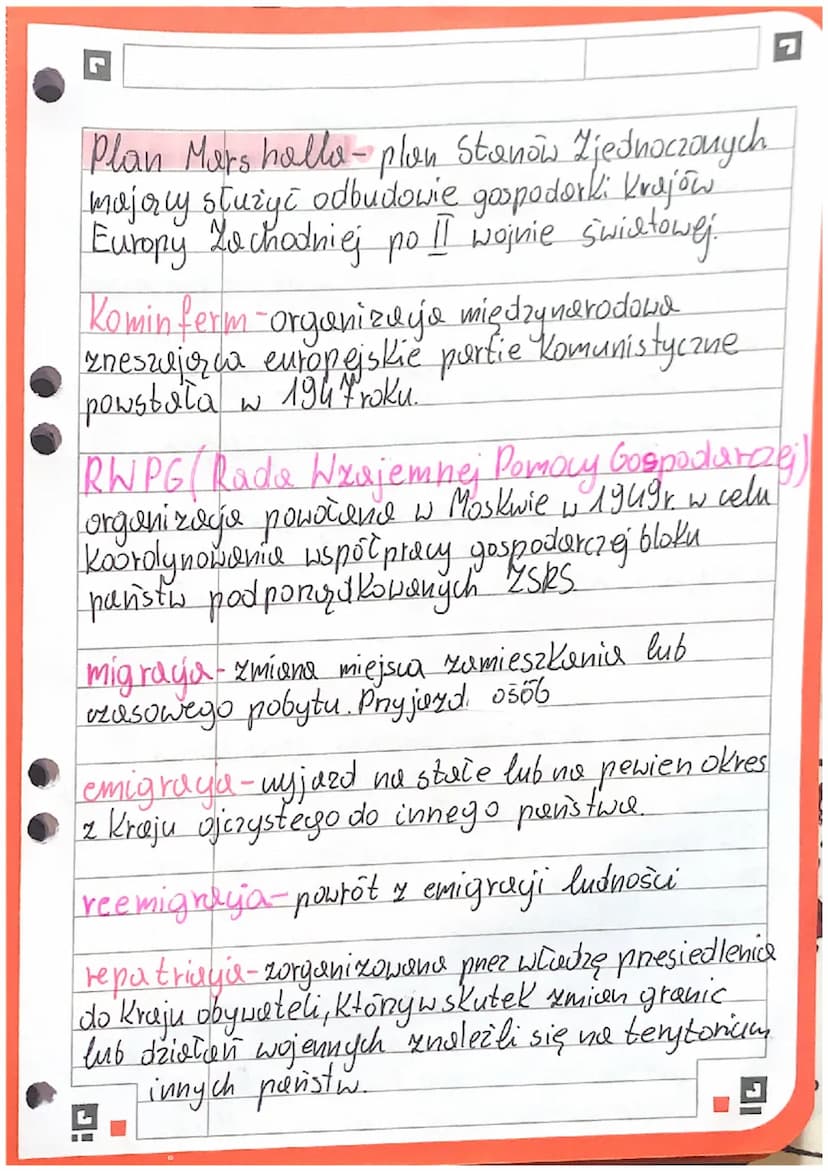 Plan Marshalla - plan Stanów Zjednoczonych
mający służyć odbudowie gospodarki krajów
Europy Zachodniej po II wojnie światowej.
Kominferm - organizacja międzynarodowa
zrzeszająca europejskie partie komunistyczne
powstała w 1947 roku.
RWPG (Rada Wzajemnej Pomocy Gospodarczej)
organizacja powołana w Moskwie w 1949r. w celu
koordynowania współpracy gospodarczej bloku
państw podporządkowanych ZSRS
migracja - zmiana miejsca zamieszkania lub
czasowego pobytu. Przyjazd. osób
emigracja - wyjazd na stałe lub na pewien okres
z kraju ojczystego do innego państwa.
reemigracja - powrót z emigracji ludności
repatriacja - zorganizowana przez władzę przesiedlenia
do kraju obywateli, którzy wskutek zmian granic
lub działań wojennych znaleźli się na terytorium
innych państw.